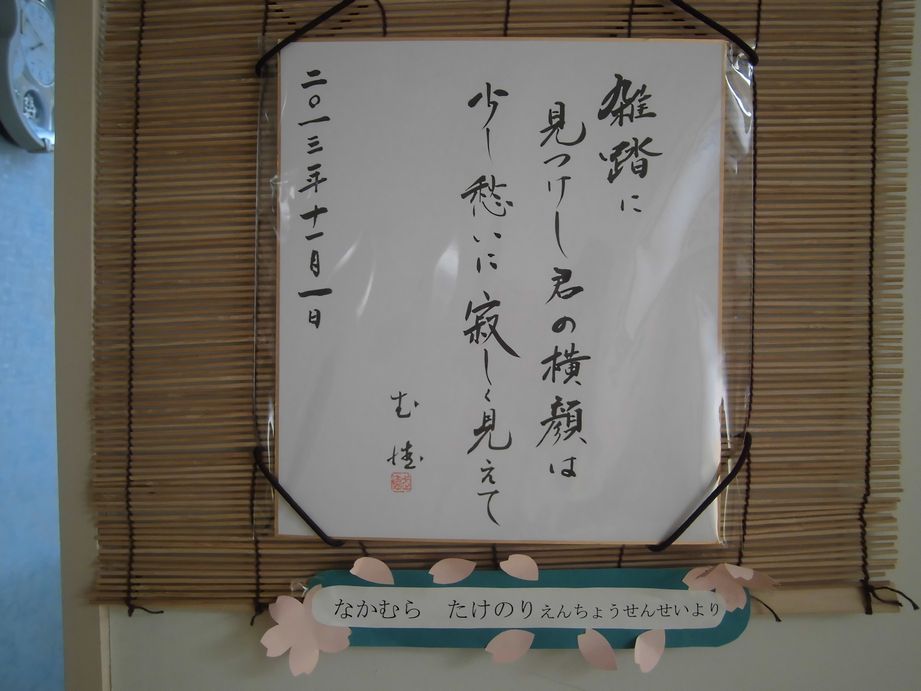 雑踏に
見つけし君の横顔は
少し愁いに寂しく見えて
二〇一三年十一月一日
なかむら たけのりえんちょうせんせいより